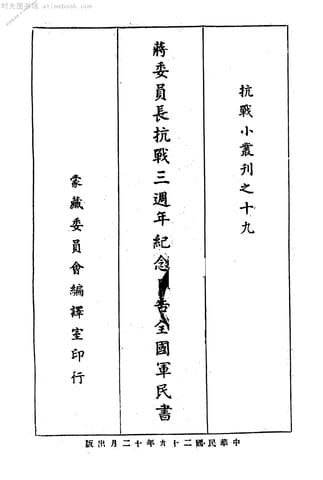 时光图书馆 atimebook.com
抗戰小叢刊之十九
蔣委員長抗戰三週年紀念告全國軍民書
蒙藏委員會編譯室印行
中華民國二十九年十二月出版